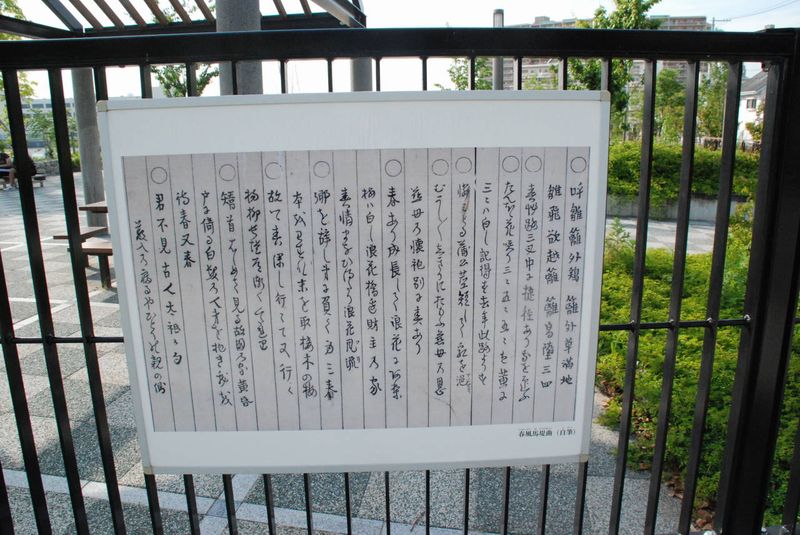 ○呼雛籬外鶏 籬外草満地
雛飛欲越籬 籬高堕三四
○春艸路三叉中に捷径あり我を迎ふ
○たんぽゝ花咲り三々五々五々は黄に
三々は白し記得す去年此路よりす
○憐ミとる蒲公茎短して乳を浥
○むかし〳〵しきりにおもふ慈母の恩
慈母の懐袍別に春あり
○春あり成長して浪花にあり
梅は白し浪花橋辺財主の家
春情まなび得たり浪花風流
○郷を辞し弟に負く身三春
本をわすれ末を取接木の梅
○故郷春深し行々て又行々
楊柳長堤道漸くくだれり
○矯首はじめて見る故園の家黄昏
戸に倚る白髪の人弟を抱き我を
待春又春
○君不見古人太祇が句
藪入の寝るやひとりの親の側
春風馬堤曲(自筆)